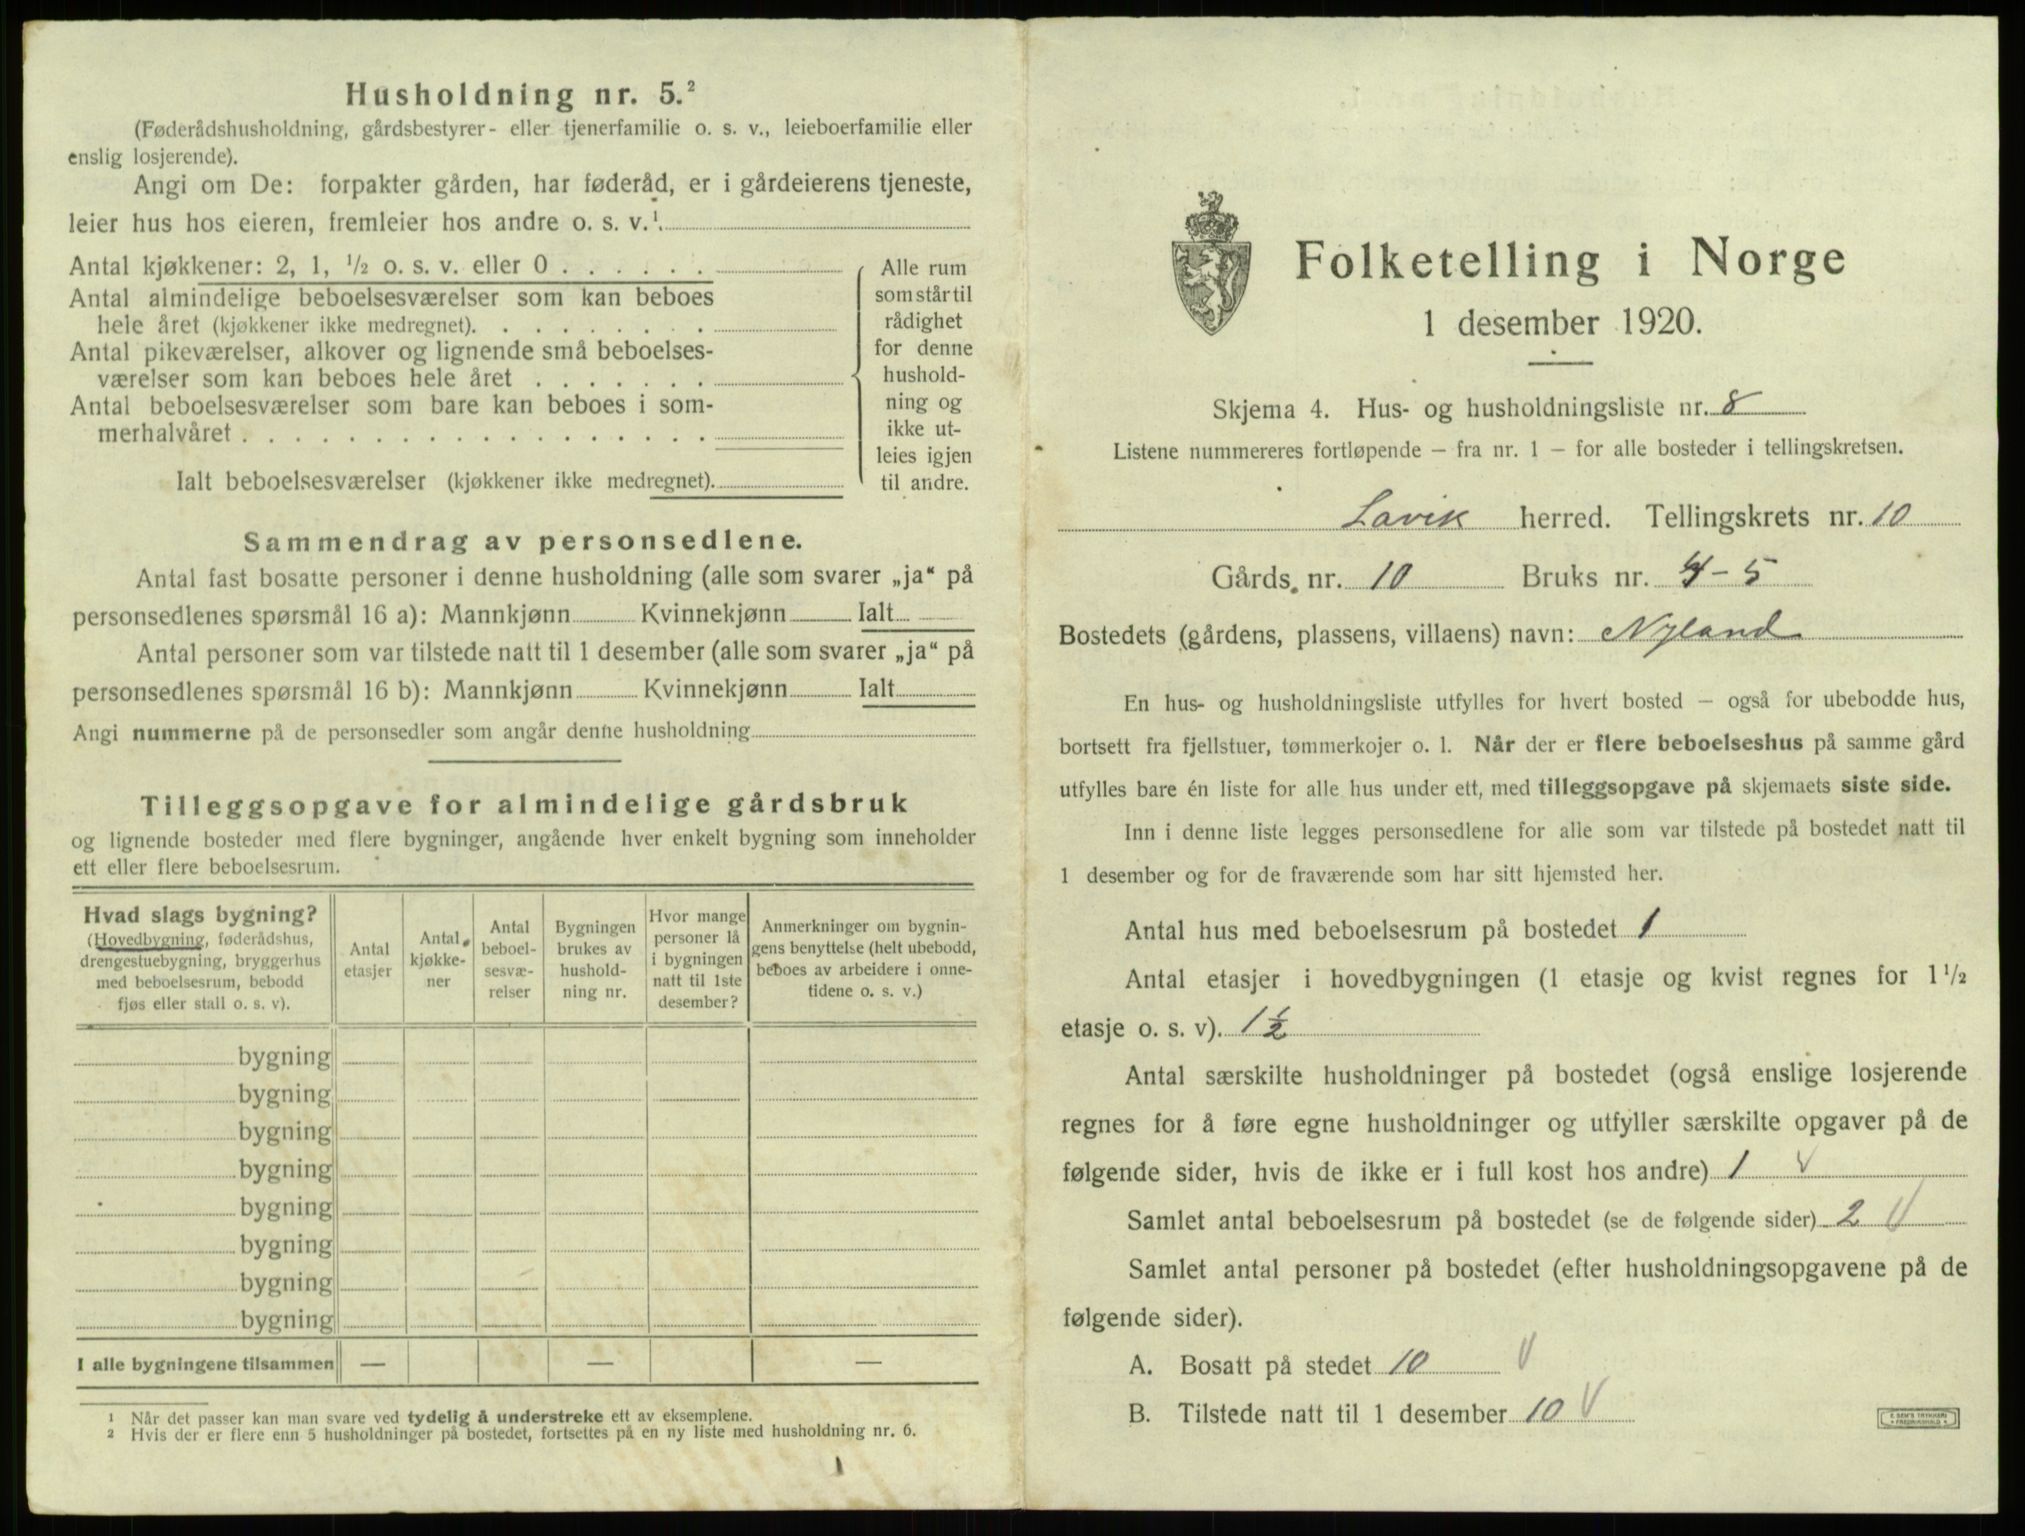 Husholdning nr. 5.²
(Føderådshusholdning, gårdsbestyrer- eller tjenerfamilie o. s. v., leieboerfamilie eller
enslig losjerende).
Angi om De: forpakter gården, har føderåd, er i gårdeierens tjeneste,
leier hus hos eieren, fremleier hos andre o. s. v.¹
Antal kjøkkener: 2, 1, ½ o. s. v. eller 0 . . . . . .
Antal almindelige beboelsesværelser som kan beboes
hele året (kjøkkener ikke medregnet). . . . . . . . .
Antal pikeværelser, alkover og lignende små beboelses-
værelser som kan beboes hele året . . . . . . .
Antal beboelsesværelser som bare kan beboes i som-
merhalvåret . . . . . . . . . . . . . . . . . .
Ialt beboelsesværelser (kjøkkener ikke medregnet).
Alle rum
som står til
rådighet
for denne
hushold-
ning og
ikke ut-
leies igjen
til andre.
Sammendrag av personsedlene.
Antal fast bosatte personer i denne husholdning (alle som svarer „ja“ på
personsedlenes spørsmål 16 a): Mannkjønn Kvinnekjønn Ialt
Antal personer som var tilstede natt til 1 desember (alle som svarer „ja“ på
personsedlenes spørsmål 16 b): Mannkjønn Kvinnekjønn Ialt
Angi nummerne på de personsedler som angår denne husholdning
Tilleggsopgave for almindelige gårdsbruk
og lignende bosteder med flere bygninger, angående hver enkelt bygning som inneholder
ett eller flere beboelsesrum.
Hvad slags bygning?
(Hovedbygning, føderådshus,
drengestuebygning, bryggerhus
med beboelsesrum, bebodd
fjøs eller stall o. s. v).
Antal
etasjer
Antal
kjøkke-
ner
Antal
beboel-
sesvæ-
relser
Bygningen
brukes av
hushold-
ning nr.
Hvor mange
personer lå
i bygningen
natt til 1ste
desember?
Anmerkninger om bygnin-
gens benyttelse (helt ubebodd,
beboes av arbeidere i onne-
tidene o. s. v.)
bygning
bygning
bygning
bygning
bygning
bygning
bygning
bygning
I alle bygningene tilsammen — — —
1 Når det passer kan man svare ved tydelig å understreke ett av eksemplene.
2 Hvis der er flere enn 5 husholdninger på bostedet, fortsettes på en ny liste med husholdning nr. 6.
Folketelling i Norge
1 desember 1920.
Skjema 4. Hus- og husholdningsliste nr. 8
Listene nummereres fortløpende – fra nr. 1 – for alle bosteder i tellingskretsen.
Lavik herred. Tellingskrets nr. 10
Gårds. nr. 10 Bruks nr. 4-5
Bostedets (gårdens, plassens, villaens) navn: Nyland
En hus- og husholdningsliste utfylles for hvert bosted – også for ubebodde hus,
bortsett fra fjellstuer, tømmerkojer o. l. Når der er flere beboelseshus på samme gård
utfylles bare én liste for alle hus under ett, med tilleggsopgave på skjemaets siste side.
Inn i denne liste legges personsedlene for alle som var tilstede på bostedet natt til
1 desember og for de fraværende som har sitt hjemsted her.
Antal hus med beboelsesrum på bostedet 1
Antal etasjer i hovedbygningen (1 etasje og kvist regnes for 1½
etasje o. s. v). 1½
Antal særskilte husholdninger på bostedet (også enslige losjerende
regnes for å føre egne husholdninger og utfyller særskilte opgaver på de
følgende sider, hvis de ikke er i full kost hos andre) 1
Samlet antal beboelsesrum på bostedet (se de følgende sider) 2
Samlet antal personer på bostedet (efter husholdningsopgavene på de
følgende sider).
A. Bosatt på stedet 10
B. Tilstede natt til 1 desember 10